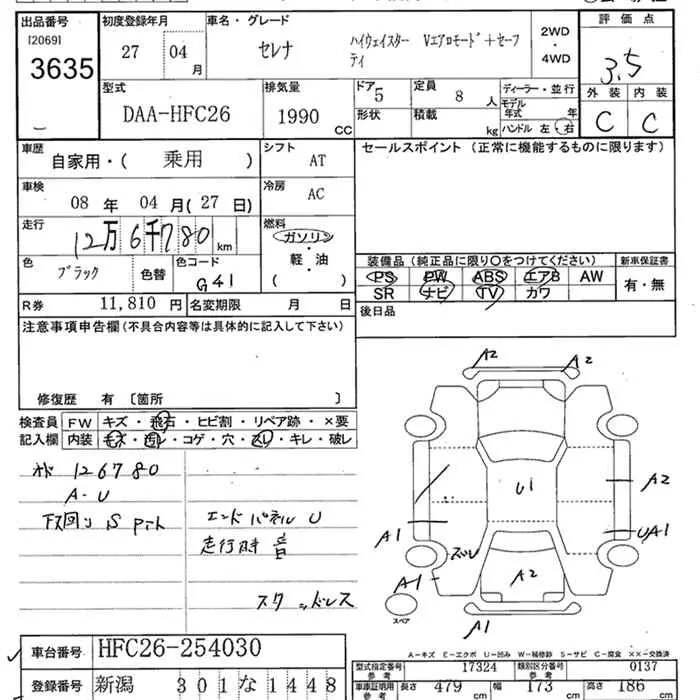 出品番号 初度登録年月 車名・グレード 2WD・4WD 評価点
[2069]
3635 27 04月 セレナ ハイウェイスター Vエアロモード+セーフティ 3.5
型式 排気量 ドア 定員 ディーラー・並行 外装 内装
DAA-HFC26 1990 CC 5 8 人 モデル年式 年 C C
形状 積載 kg ハンドル 左・右
車歴 シフト セールスポイント (正常に機能するものに限ります)
自家用・( 乗用 ) AT
車検 冷房
08 年 04 月(27 日) AC
走行 燃料
12万6千780 km ガソリン・軽油
装備品 (純正品に限り○をつけてください) 新車保証書
色 色替 色コード ( )
ブラック G41
PS PW ABS エアB AW 有・無
SR ナビ TV カワ
R券 11,810 円 名変期限 月 日 後日品
注意事項申告欄 (不具合内容等は具体的に記入して下さい)
修復歴 有 〔箇所 〕
検査員記入欄 FW キズ・飛石・ヒビ割・リペア跡・×要
内装 キズ・汚レ・コゲ・穴・スレ・キレ・破レ
126780
A-U
下回り S
エンドパネル U
走行時 音
スタッドレス
A2 A2
U1
A2
A1 UA1
A1 A2
A1
スペア
A-キズ E-エクボ U-凹み W-補修跡 S-サビ C-腐食 ×××-交換済
車台番号 HFC26-254030
登録番号 新潟 301な1448
型式指定番号 参考 17324 類別区分番号 参考 0137
車庫証明用 参考 長さ 479 cm 幅 173 cm 高さ 186 cm